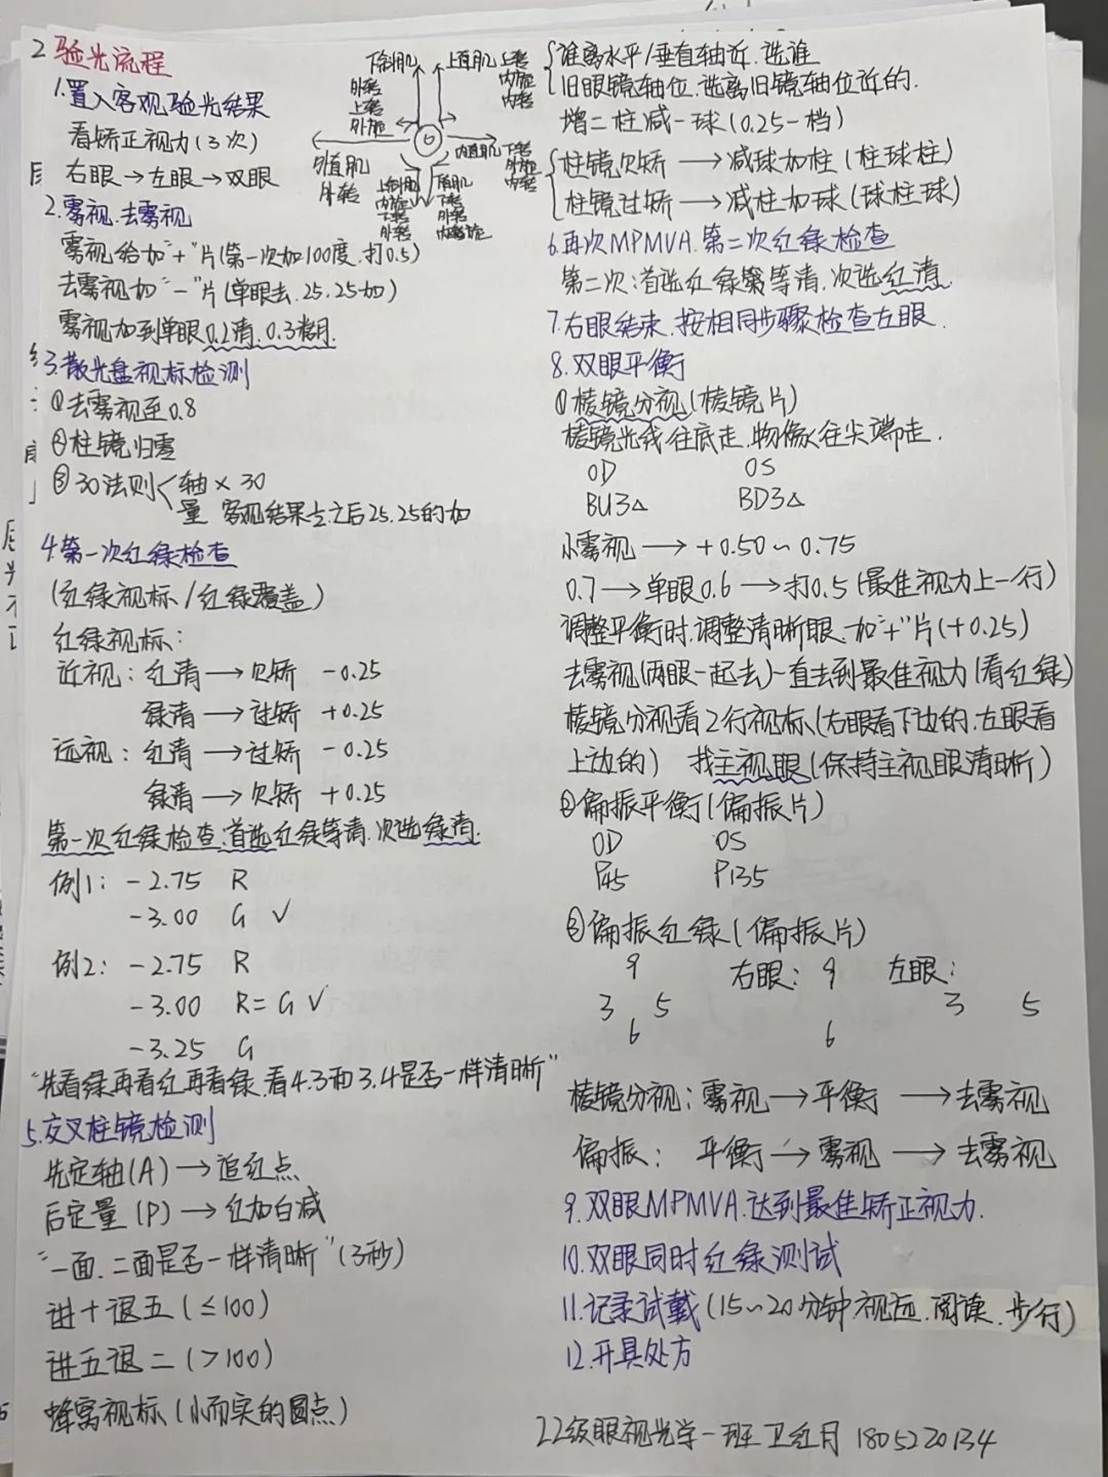 2 验光流程
1.置入客观验光结果
看矫正视力(3次)
右眼→左眼→双眼
下斜肌
外转
上转
外旋
上直肌 上转
内旋
内转
外直肌
外转
内直肌
下转
外旋
内转
上斜肌
内旋
下转
外转
下直肌
下转
2.雾视.去雾视
雾视给加"+"片(第一次加100度.打0.5)
去雾视加"-"片(单眼去.25.25加)
雾视加到单眼0.2清.0.3糊
3.散光盘视标检测
①去雾视至0.8
②柱镜归零
③30法则<轴×30
量 客观结果去之后25.25的加
4.第一次红绿检查
(红绿视标/红绿覆盖)
红绿视标:
近视:红清→欠矫 -0.25
绿清→过矫 +0.25
远视:红清→过矫 -0.25
绿清→欠矫 +0.25
第一次红绿检查:首选红绿等清.次选绿清.
例1: -2.75 R
-3.00 G √
例2: -2.75 R
-3.00 R=G √
-3.25 G
"先看绿再看红再看绿.看4.3和3.4是否一样清晰"
5.交叉柱镜检测
先定轴(A)→追红点
后定量(P)→红加白减
"一面.二面是否一样清晰"(3秒)
进十退五(≤100)
进五退二(>100)
蜂窝视标(小而实的圆点)
谁离水平/垂直轴近.选谁
旧眼镜轴位.选离旧镜轴位近的.
增二柱减一球(0.25一档)
柱镜欠矫→减球加柱(柱球柱)
柱镜过矫→减柱加球(球柱球)
6.再次MPMVA.第二次红绿检查
第二次:首选红绿等清.次选红清.
7.右眼结束.按相同步骤检查左眼.
8.双眼平衡
①棱镜分视(棱镜片)
棱镜光线往底走.物像往尖端走.
OD OS
BU3△ BD3△
小雾视→+0.50~0.75
0.7→单眼0.6→打0.5(最佳视力上一行)
调整平衡时.调整清晰眼.加"+"片(+0.25)
去雾视(两眼一起去)一直去到最佳视力(看红绿)
棱镜分视看2行视标(右眼看下边的.左眼看
上边的) 找主视眼(保持主视眼清晰)
②偏振平衡(偏振片)
OD OS
P45 P135
③偏振红绿(偏振片)
9 右眼: 9 左眼:
3 5 3 5
6 6
棱镜分视:雾视→平衡→去雾视
偏振: 平衡→雾视→去雾视
9.双眼MPMVA.达到最佳矫正视力.
10.双眼同时红绿测试
11.记录试戴(15~20分钟.视远.阅读.步行)
12.开具处方
22级眼视光学一班 卫红月 1805220134